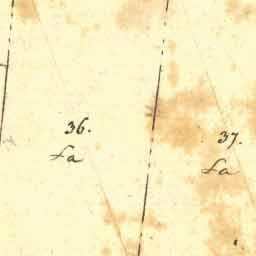 36.
La
37.
La